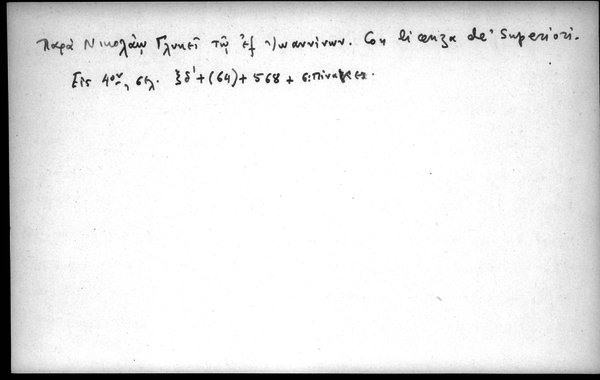 Παρὰ Νικολάῳ Γλυκεῖ τῷ ἐξ Ἰωαννίνων. Con licenza de' Superiori.
Εἰς 4ον, σελ. ξδ'+(64)+568 + 6 πίνακες.